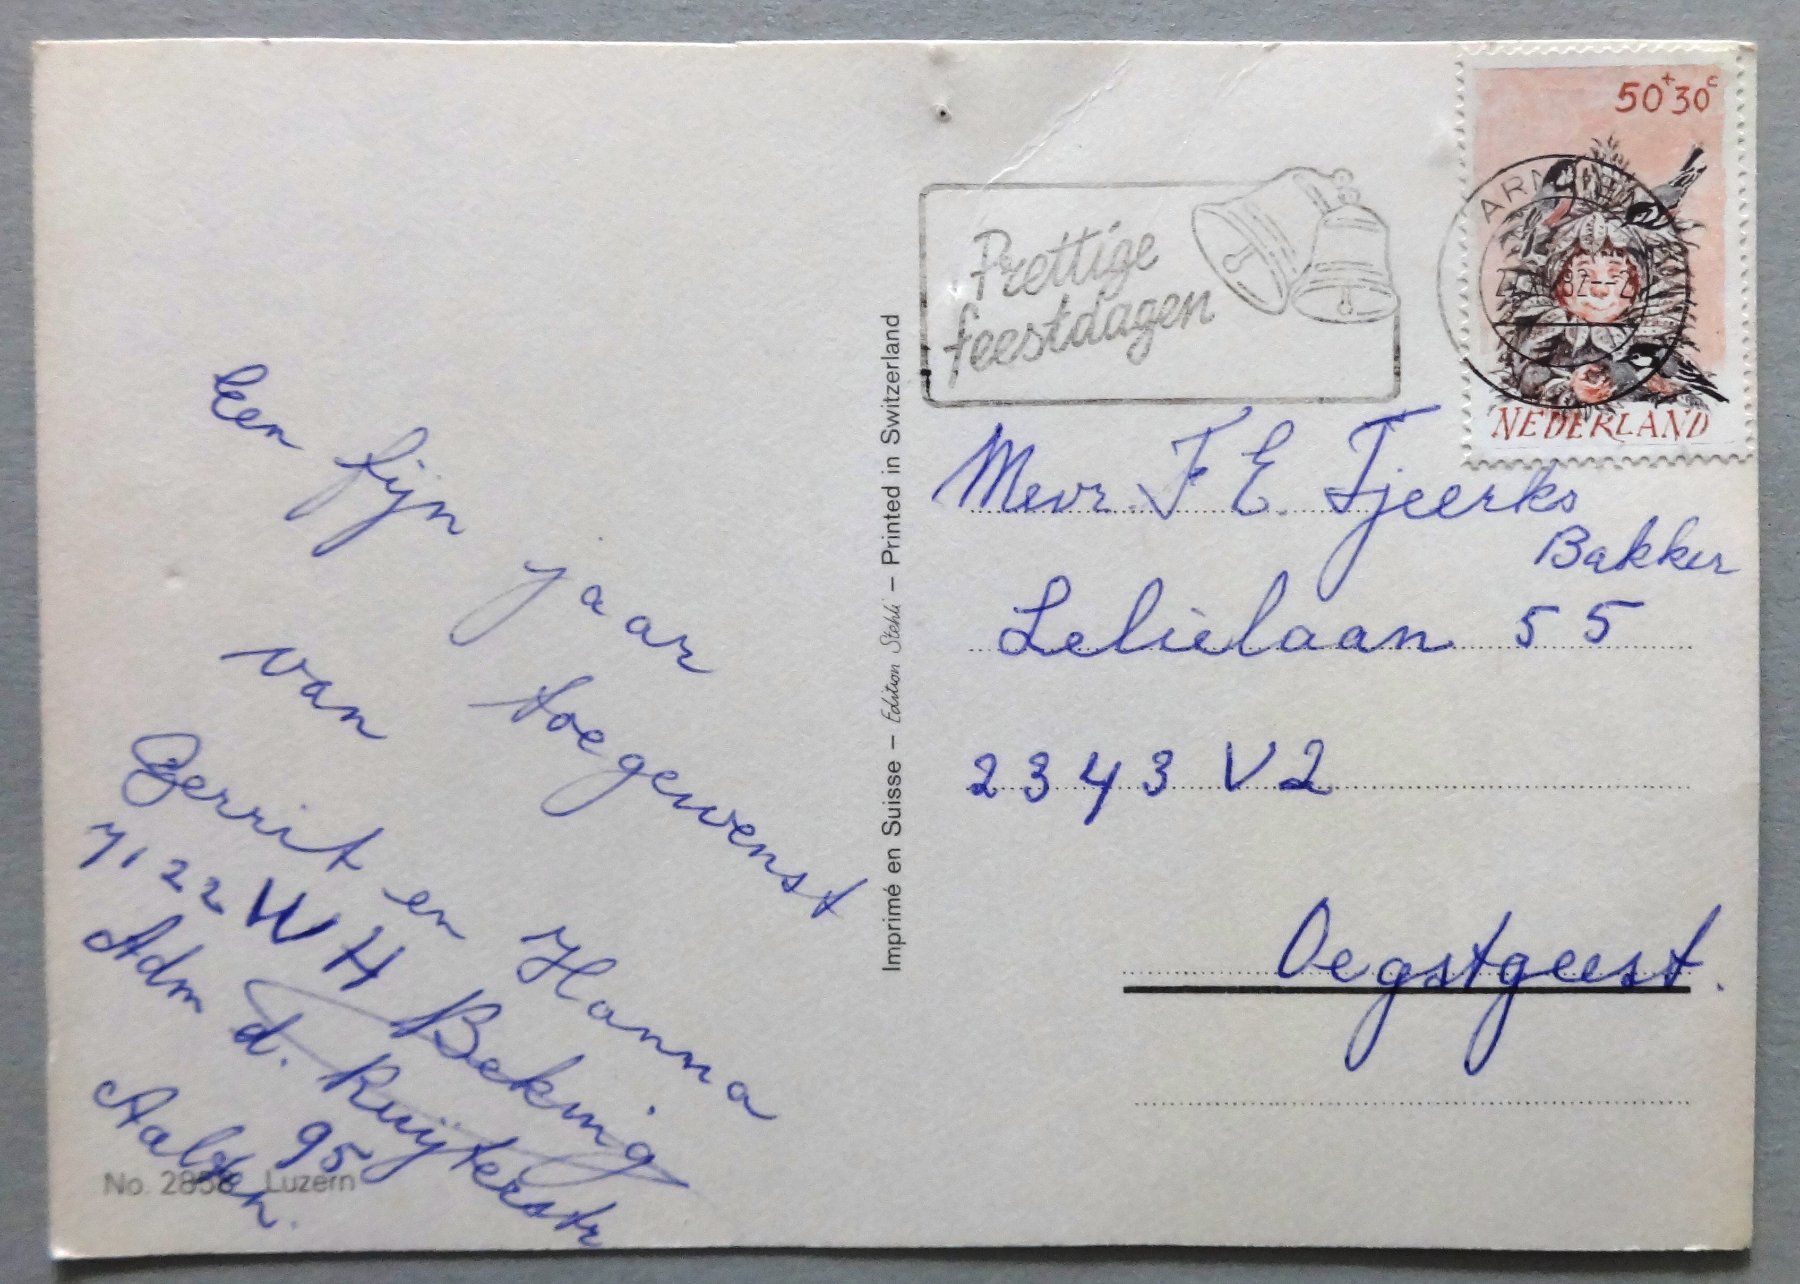 een fijn jaar
toegewenst
van
Gerrit en Hanna
7122 WH Beking
Adm d. Ruyterstr
95
Aalten.
No. Luzern
Imprimé en Suisse – Edition Stehli – Printed in Switzerland
Prettige
feestdagen
50+30c
ARNHEM
NEDERLAND
Mevr. F E. Tjeerks
Bakker
Lelielaan 55
2343 V2
Oegstgeest.